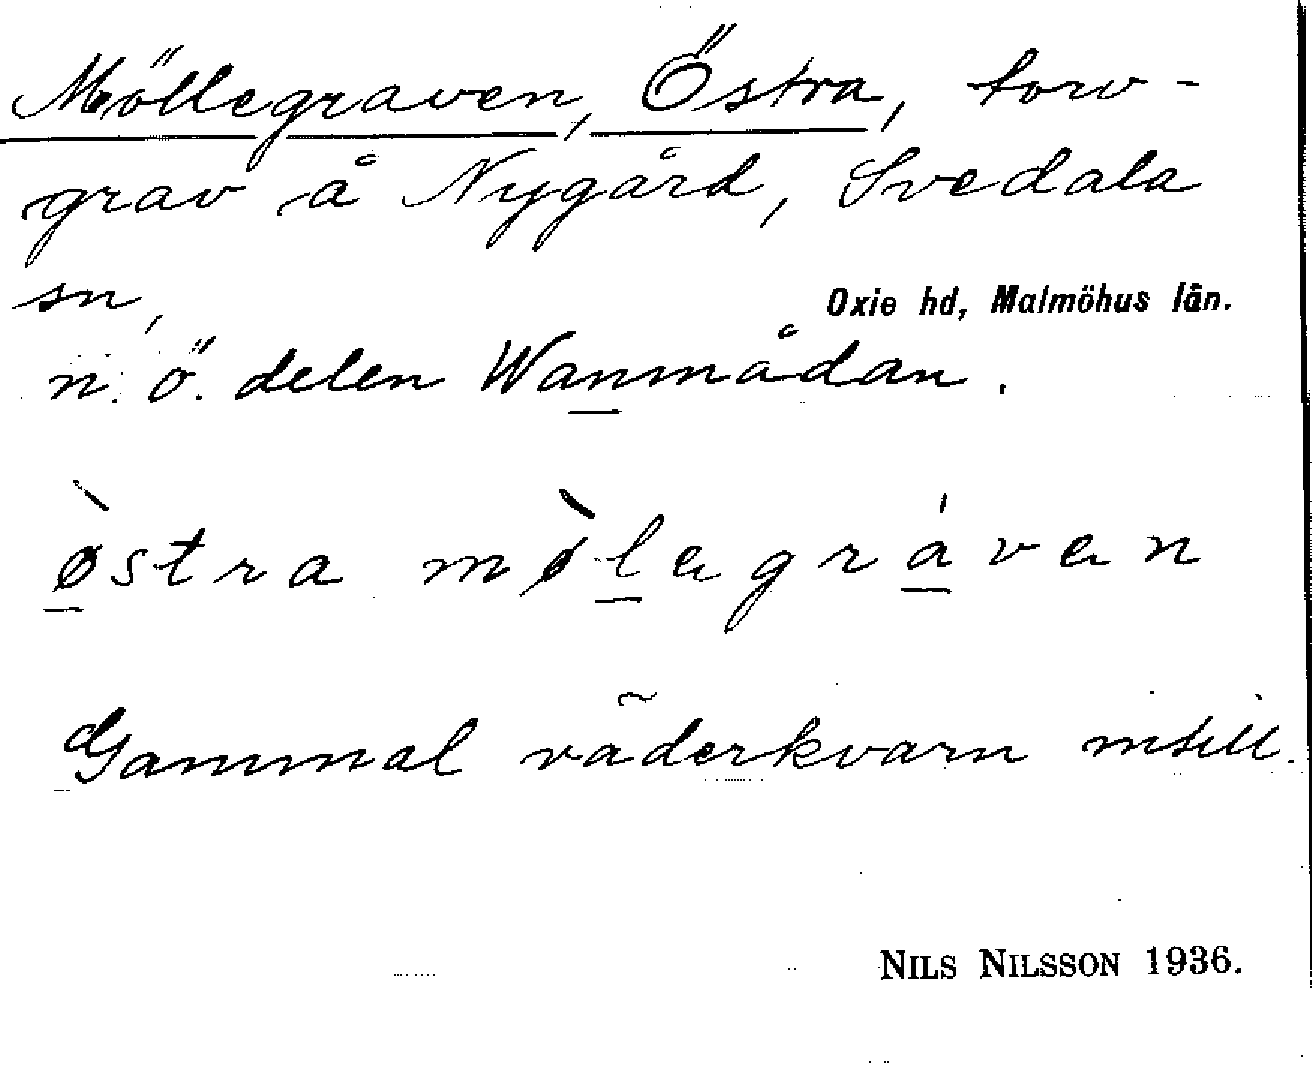 Möllegraven, Östra, torv-
grav å Nygård, Svedala
sn,
Oxie hd, Malmöhus län.
n. ö. delen Wanmådan.
østra mølegraven
Gammal väderkvarn intill.
NILS NILSSON 1936.